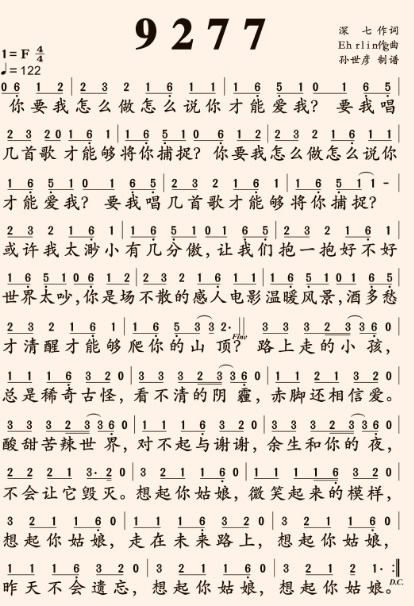 9277
深 七 作词
Ehrling 作曲
孙世彦 制谱
1=F 4/4
♩=122
06 1 2 | 2 3 2 1 6 1 1 | 1 6 5 1 0 1 6 5 |
你要我怎么做怎么说你才能爱我？要我唱
2 3 20 1 6 1 | 1 6 5 1 0 6 1 2 | 2 3 2 1 6 1 1 |
几首歌 才能够将你捕捉？你要我怎么做怎么说你
1 6 5 1 0 1 6 5 | 2 3 2 1 6 1 | 1 6 5 1 1 - |
才能爱我？ 要我唱几首歌才能够将你捕捉？
或许我太渺小有几分傲，让我们抱一抱好不好
世界太吵，你是场不散的感人电影温暖风景，酒多愁
2 3 2 1 6 1 | 1 6 5 3 3 2· || 3 3 3 2 3 3 6 0 |
才清醒才能够爬你的山 顶？ 路上走的小 孩，
Fine
1 1 1 6 3 2 0 | 3 3 3 2 3 3 6 0 | 1 1 2 1 3 2 0 |
总是稀奇古怪，看不清的阴 霾，赤脚还相信爱。
3 3 3 2 3 3 6 0 | 1 1 1 6 3 2 0 | 3 3 3 2 3 3 6 0 |
酸甜苦辣世 界，对不起与谢谢，余生和你的 夜，
2 2 2 1 3· 2 0 | 3 2 1 1 6 0 | 1 1 1 1 6 3 2 0 |
不会让它毁灭。想起你姑娘，微笑起来的模样，
3 2 1 1 6 0 | 1 1 1 6 3 2 0 | 3 2 1 1 6 0 |
想起你姑娘，走在未来路上，想起你姑娘，
1 1 1 6 3 2 0 | 3 2 1 1 6 0 | 3 2 1 1 6 · :||
昨天不会遗忘，想起你姑娘，想起你姑娘。
D.C.